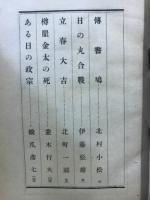 傳書鳩 北村小松
日の丸合戰 伊藤松雄
立春大吉 北町一郎
樽屋金太の死 並木行夫
ある日の政宗 橋爪彦七